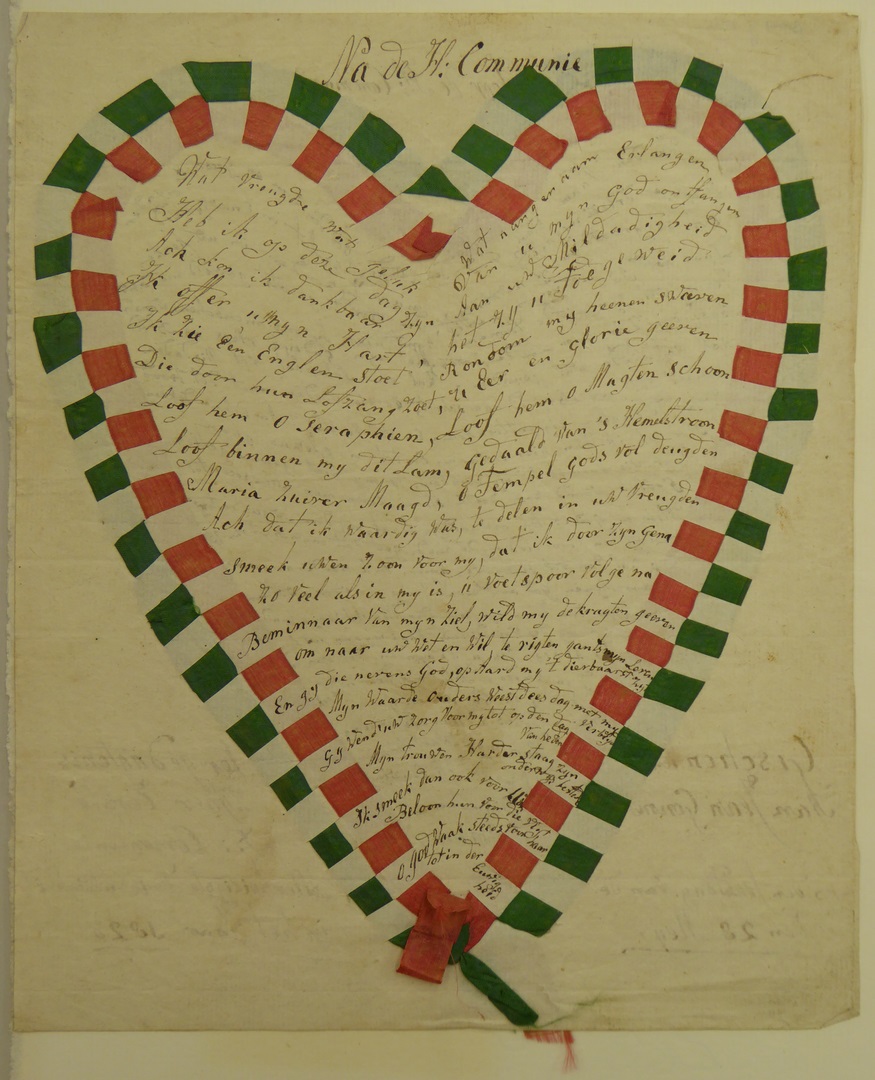 Na de H: Communie
Wat vreugde wat geluk
Heb ik op deze dag
Wat aangenaam Erlangen
Van u myn God ontfangen
Ach kon ik dankbaar zyn
Aan uw Mildadigheid
Ik offer u myn Hart,
het zy u Toegeweid
Ik zie Een Englen stoet
Rondom my heenen swæven
Die door hun Lofzang zoet, u Eer en glorie geeven
Loof hem o Seraphien, Loof hem o Magten schoon
Loof binnen my dit Lam, gedaald van 's Hemelstroon
Maria zuiver Maagd, o Tempel gods vol deugden
Ach dat ik waardig was, te delen in uw vreugden
smeek uwen zoon voor my, dat ik door zyn gena
zo veel als in my is, u voetspoor volge na
Beminnaar van myn ziel, wild my de kragten geeven
om naar uw Wet en Wil, te rigten gants myn leven
En gy die nevens God, op aard my 't dierbaarst zyt
Myn Waarde ouders weest dees dag met my verblyd
Gy wend uw zorg voor my tot op den dag van heden
Myn trouwen Harder staag zyn
Ik smeek dan ook voor
Beloon hun voor die vlyt
o god Waak steeds voor haar
tot in der Euwighheid